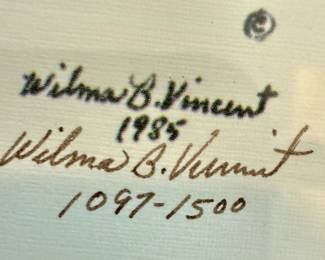 ©
Wilma B. Vincent
1985
Wilma B. Vincent
1097-1500